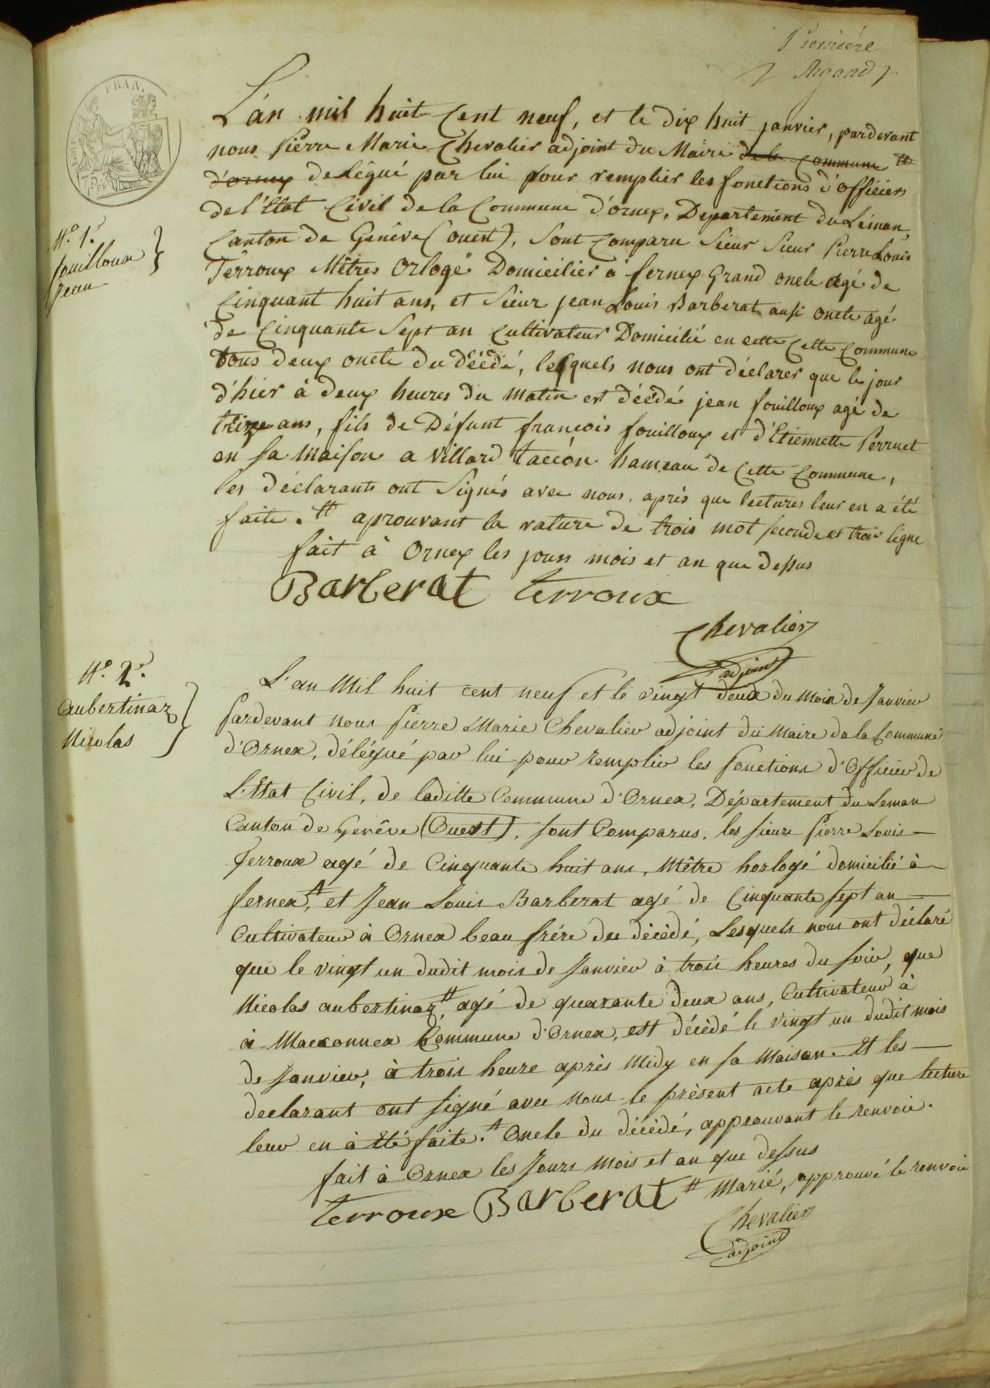 Première
FRAN.
L'an mil huit Cent neuf, et le dix huit janvier, pardevant
nous Pierre Marie Chevalier adjoint du Maire de la Commune #
d'ornex delégué par lui pour remplier les fonctions d'officiers
de l'Etat Civil de la Commune d'ornex, Departement du Léman,
Canton de Genêve (ouest), sont Comparu Sieur Sieur Pierre Louis
Têrroux Mêtres Orlogé Domicilier a fernex Grand oncle agé de
Cinquant huit ans, et Sieur jean Louis Barberat ausi oncle agé
de Cinquante Sept an Cultivateur Domicilié en cette Cette Commune
tous deux oncle du Décédé, lesquels nous ont déclarer que le jour
d'hier à deux heures du matin est décédé jean fouilloux agé de
treize ans, fils de Défunt francois fouilloux et d'Etiennette Perruet
en sa maison a villard taccon hameau de Cette Commune,
les déclarants ont Signés avec nous. après que lectures leur en a été
faite. # aprouvant la rature de trois mot seconde et trois ligne
fait à Ornex les jours mois et an que dessus
Barberat Terroux
Chevalier
adjoint
No. 1r.
fouilloux
jean
No. 2r.
Aubertinaz
Nicolas
L'an Mil huit cent neuf et le vingt deux du mois de Janvier
Pardevant nous Pierre Marie Chevalier adjoint du Maire de la Commune
d'Ornex, délégué par lui pour remplir les fonctions d'Officier de
L'Etat Civil, de laditte Commune d'Ornex, Département du Leman
Canton de Genêve (Ouest), sont Comparus, les sieurs Pierre Louis
Terroux agé de Cinquante huit ans, Mêtre horlogé domicilié à
fernex, # et Jean Louis Barberat agé de Cinquante sept an
Cultivateur à Ornex beau frère du décédé, Lesquels nous ont déclaré
que le vingt un dudit mois de Janvier à trois heures du soir, que
Nicolas aubertinaz # agé de quarante deux ans, Cultivateur à
à Maconnex Commune d'Ornex, est décédé le vingt un dudit mois
de Janvier, à trois heure après Midy en sa Maison. Et les
declarant ont signé avec nous le présent acte après que lecture
leur en à été faite. # Oncle du décédé, approuvant le renvoie.
fait à Ornex les Jours Mois et an que dessus
# Marié, approuvé le renvoie
Terroux Barberat
Chevalier
adjoint